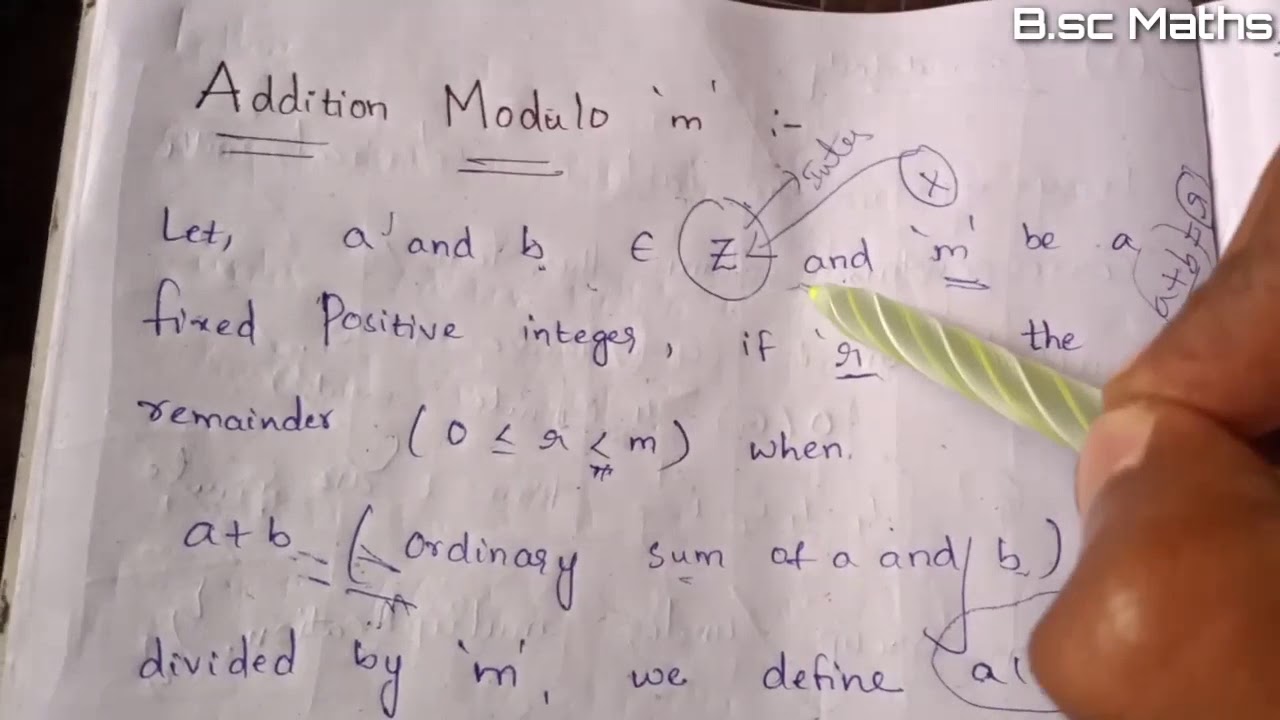 B.sc Maths
Addition Modulo 'm' :-
x
Let, a and b ∈ Z and 'm' be a
a+b=r
fixed Positive integer, if 'r the
remainder (0 ≤ r < m) when.
a+b = (ordinary sum of a and b)
divided by 'm', we define a(